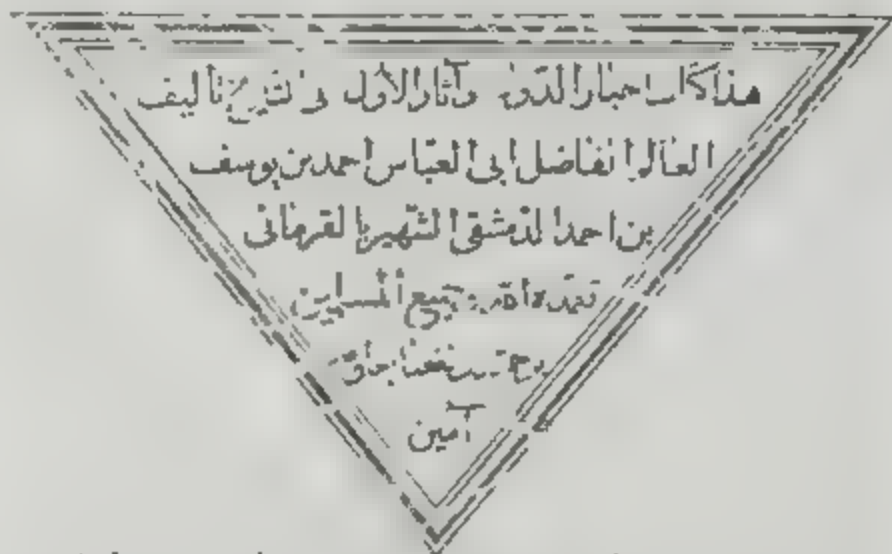 هذا كتاب اخبار الدول وآثار الاول فى التاريخ تأليف
العالم الفاضل ابى العباس احمد بن يوسف
بن احمد الدمشقى الشهير بالقرمانى
تغمده الله جميع المسلمين
برحمته ونفعنا
آمين